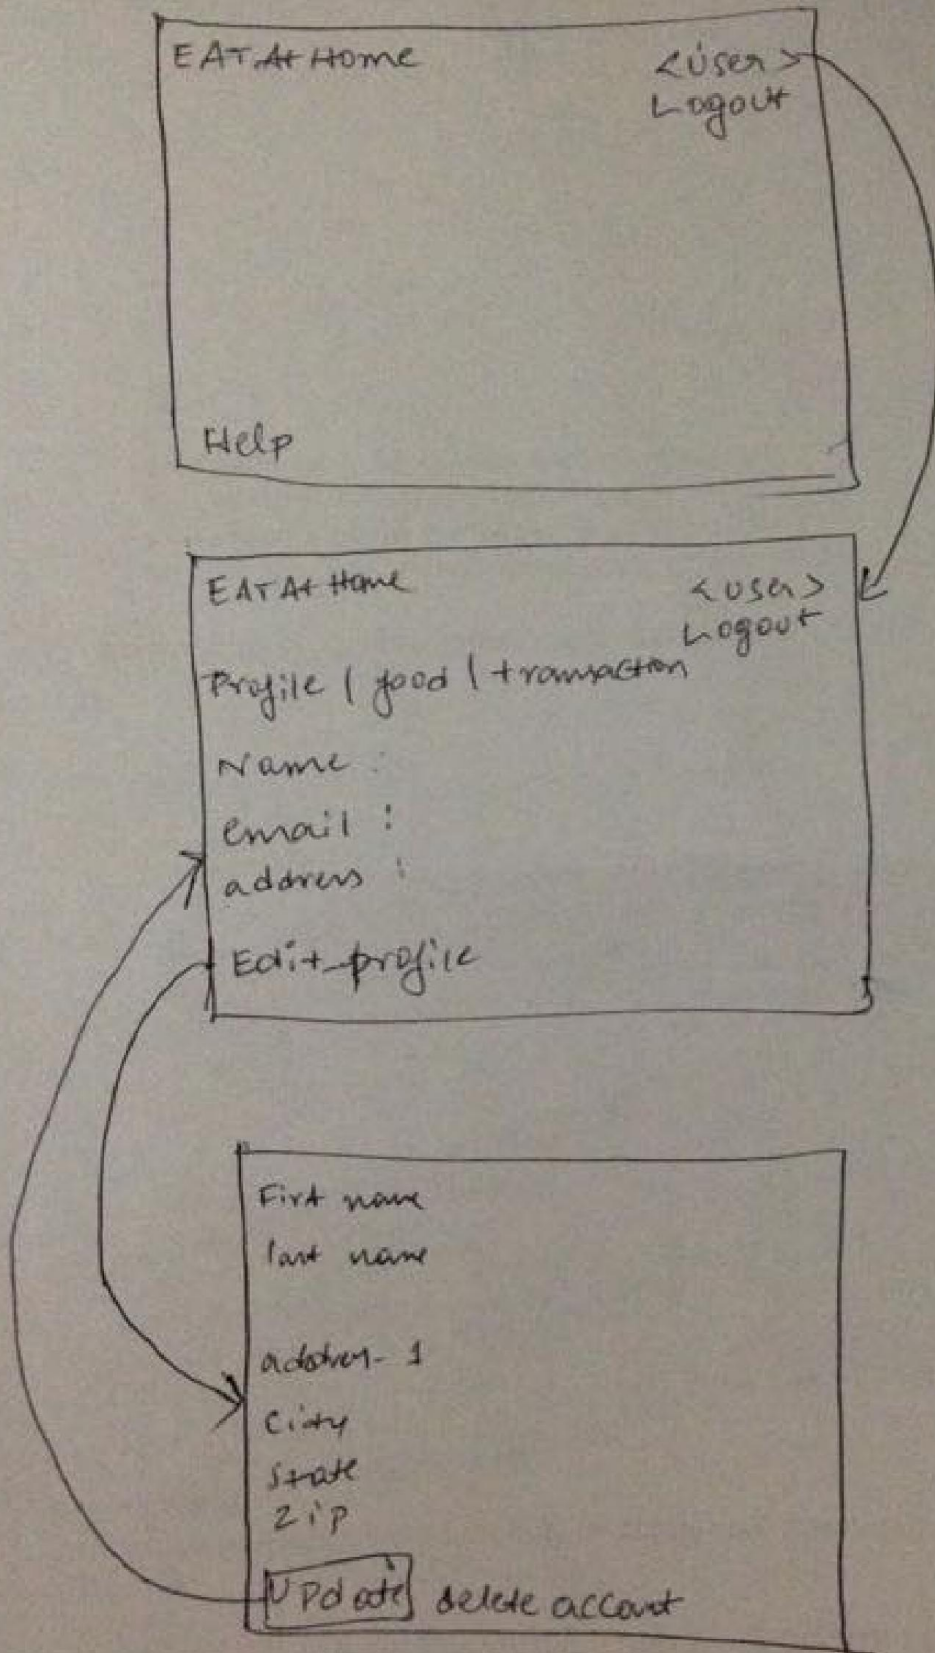 EAT At Home
<User>
Logout
Help
EAT At Home
<User>
Logout
Profile | food | transaction
Name :
email :
address :
Edit profile
First name
last name
address-1
City
State
Zip
UPdate delete account